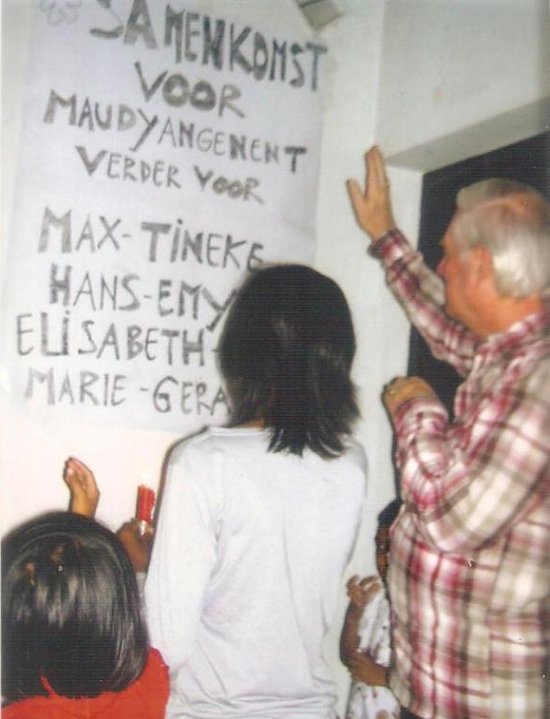 SAMENKOMST
VOOR
MAUDY ANGENENT
VERDER VOOR
MAX-TINEKE
HANS-EMY
ELISABETH-
MARIE-GERA